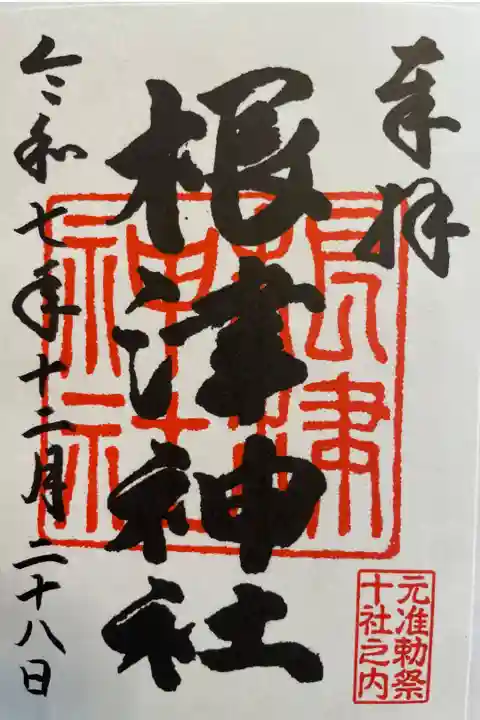 奉拝
根津神社
令和七年十二月二十八日
根津
神社
元准勅祭
十社之内